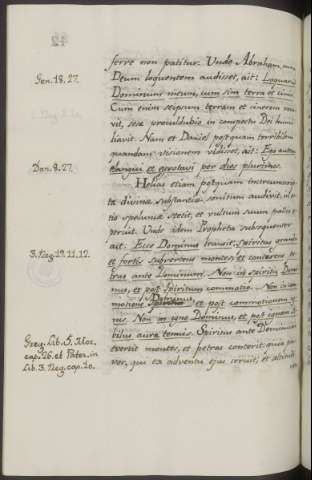 ferre non patitur. Unde Abraham, cum
Gen. 18. 27. Deum loquentem audisset, ait: Loquar ad
Dominum meum, cum sim terra et cinis.
Cum enim seipsum terram et cinerem
vit, sese proculdubio in conspectu Dei humi
liavit. Nam et Daniel postquam terribilem
quandam visionem vidisset, ait: Ego autem
Dan. 8. 27. elangui et ægrotavi per dies plurimos.
Helias etiam postquam
ta divinæ substantiæ sonitum audivit, in
tis speluncæ stetit, et vultum suum pallio
peruit. Unde idem Propheta subsequenter
3. Reg. 19. 11. 12. ait: Ecce Dominus transit, spiritus grandis
et fortis subvertens montes, et conterens
tras ante Dominum. Non in spiritu Domi
nus, et post spiritum commotio. Non in com
motione Dominus, et post commotionem
nis. Non in igne Dominus, et post ignem
Greg. Lib. 5. Mor. bilus auræ tenuis. Spiritus ante Dominum
cap. 26. et Pater. in evertit montes, et petras conterit: quia
Lib. 3. Reg. cap. 20. vor, qui ex adventu ejus irruit, et